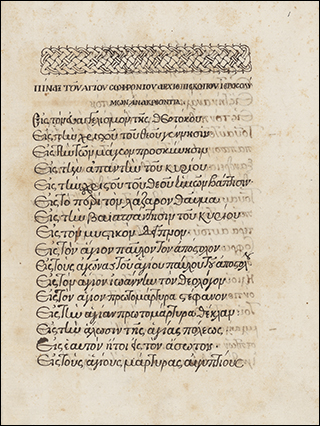 ΠΙΝΑΞ ΤΟΥ ΑΓΙΟΥ ΣΩΦΡΟΝΙΟΥ ΑΡΧΙΕΠΙΣΚΟΠΟΥ ΙΕΡΟΣΟΛΥ
ΜΩΝ ΑΝΑΚΡΕΟΝΤΙΑ
Εἰς τὸν εὐαγγελισμὸν τῆς Θεοτόκου
Εἰς τὴν χριστοῦ τοῦ θεοῦ γέννησιν
Εἰς τὴν τῶν μάγων προσκύνησιν
Εἰς τὴν ἀπαντὴν τοῦ κυρίου
Εἰς τὴν χριστοῦ τοῦ Θεοῦ ἡμῶν βάπτισιν
Εἰς τὸ περὶ τὸν λάζαρον θαῦμα
Εἰς τὴν τοῦ κυρίου
Εἰς τὸ μυστικὸν δεῖπνον
Εἰς τὸν ἅγιον παῦλον τὸν ἀπόστολον
Εἰς τοὺς ἀγῶνας τοῦ ἁγίου παύλου τοῦ ἀποστόλ
Εἰς τὸν ἅγιον ἰωάννην τὸν θεολόγον
Εἰς τὸν ἅγιον πρωτομάρτυρα στέφανον
Εἰς τὴν ἁγίαν πρωτομάρτυρα θέκλαν
Εἰς τὴν ἅλωσιν τῆς ἁγίας πόλεως
Εἰς ἑαυτὸν ἤτοι εἰς τὸν ἄσωτον
Εἰς τοὺς ἁγίους μάρτυρας αἰγυπτίους